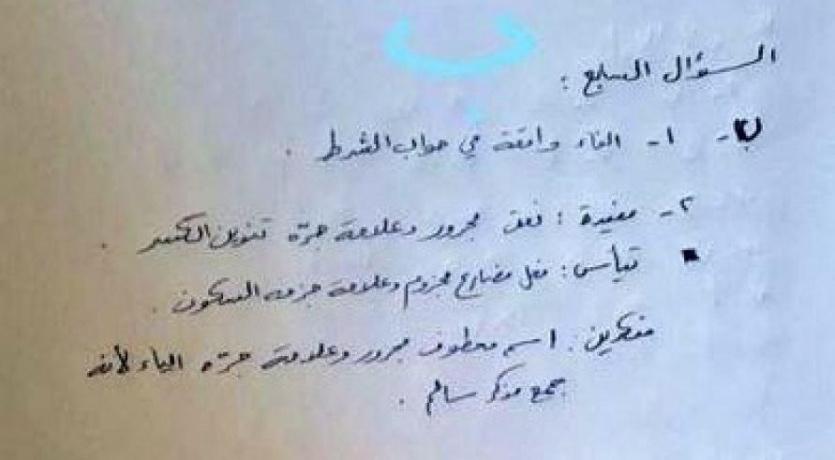 السؤال السابع :
ب - ١ - الفاء واقعة في جواب الشرط .
٢ - مفيدة : نعت مجرور وعلامة جرّه تنوين الكسر .
تيأس : فعل مضارع مجزوم وعلامة جزمه السكون .
مفكرين : اسم معطوف مجرور وعلامة جرّه الياء لأنه
جمع مذكر سالم .